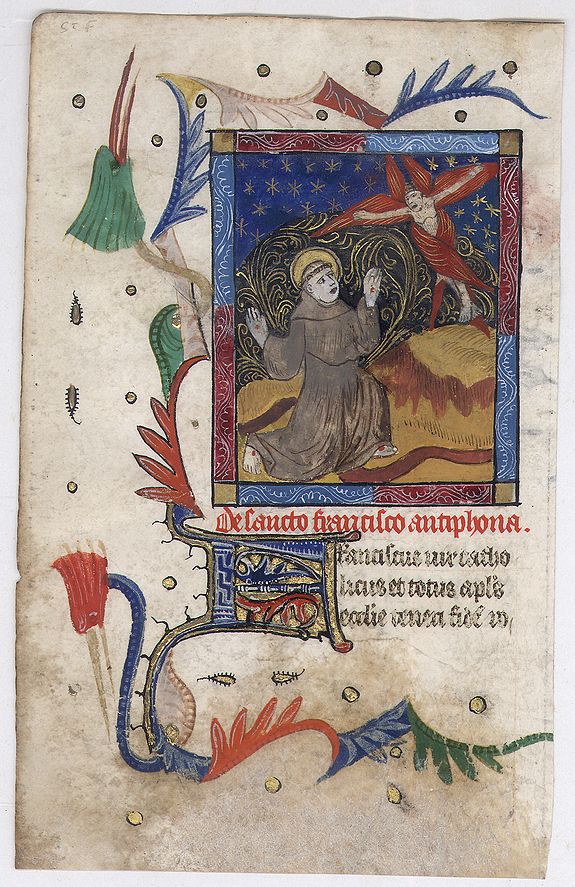 St F
De sancto francisco antiphona.
Franciscus vir catho
licus et totus apl's
ecclie teneri fidē ro